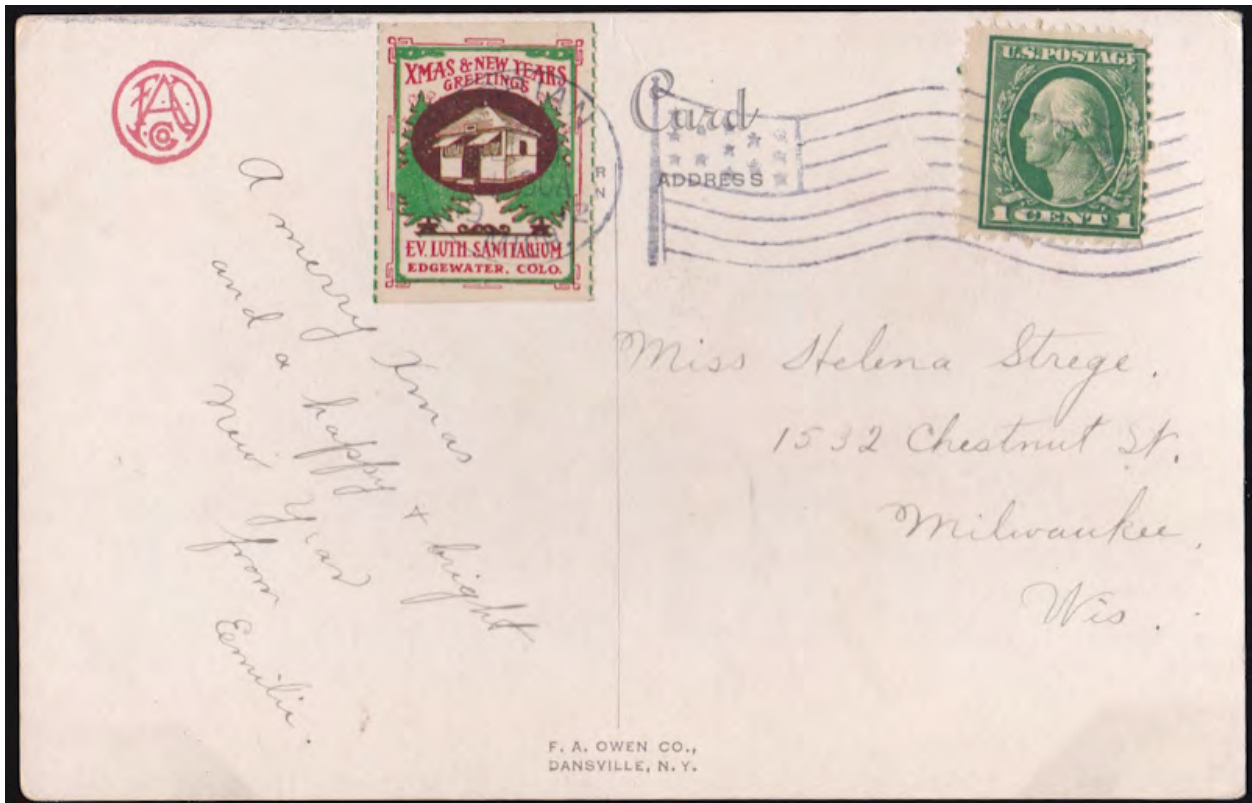 FAO Co
XMAS & NEW YEARS
GREETINGS
EV. LUTH. SANITARIUM
EDGEWATER, COLO.
Card
ADDRESS
U.S. POSTAGE
1 CENT 1
A merry Xmas
and a happy + bright
New Year
from
Eemilie.
Miss Helena Strege.
1532 Chestnut St.
Milwaukee,
Wis.
F. A. OWEN CO.,
DANSVILLE, N. Y.